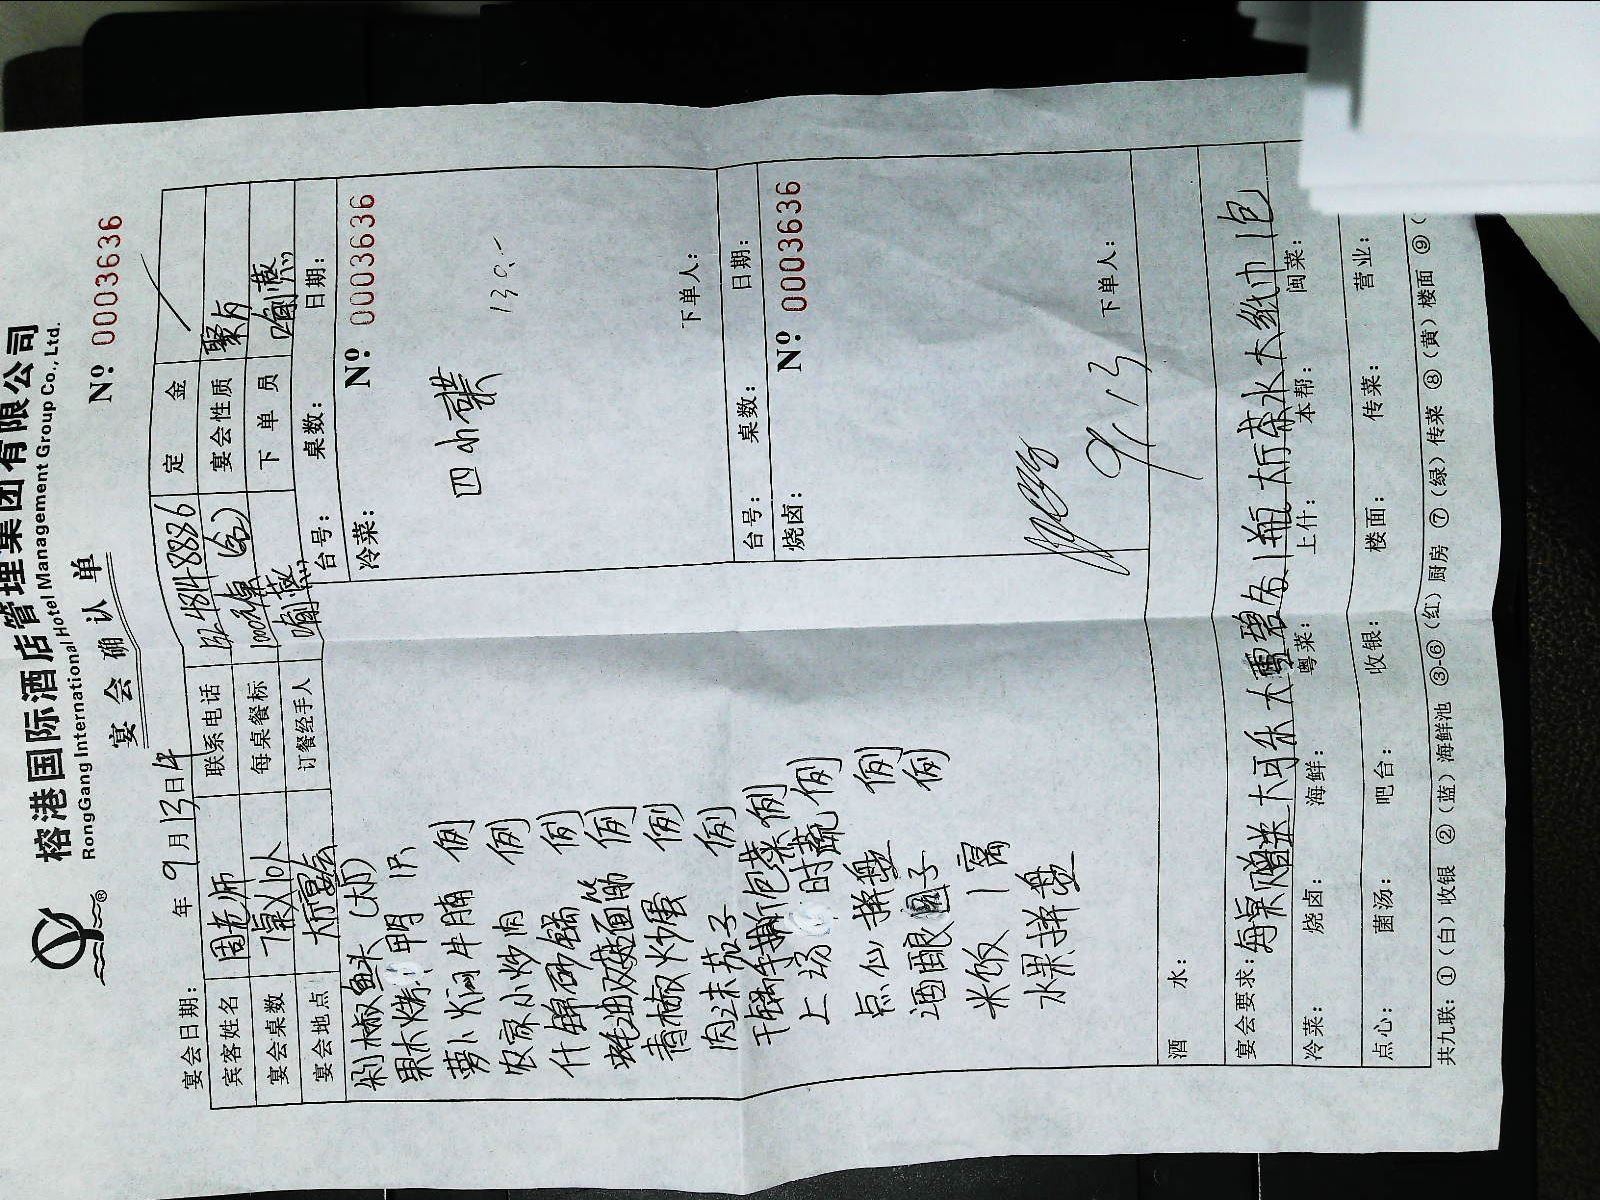 榕港国际酒店管理集团有限公司
RongGang International Hotel Management Group Co., Ltd.
宴会确认单
Nº 0003636
宴会日期： 年 9 月 13 日 午
宾客姓名 周老师 联系电话 152 4814 8836 定金
宴会桌数 1桌×10人 每桌餐标 1000元/桌 宴会性质 聚与
宴会地点 大厅宴会 订餐经手人 喻燕 下单员 喻燕
剁椒鱼头（大）
果木烤鸭 1只
萝卜焖牛腩 例
农家小炒肉 例
什锦砂锅 例
蚝油双菇面筋 例
青椒炒蛋 例
肉沫茄子 例
干锅手撕包菜 例
上汤时蔬 例
点仙拼盘 例
酒酿圆子 例
米饭 1窝
水果拼盘
台号： 桌数： 日期：
冷菜： Nº 0003636
四小碟
130.-
下单人：
台号： 桌数： 日期：
烧卤： Nº 0003636
9/13
下单人：
酒 水：
宴会要求：每桌赠送大可乐大雪碧各1瓶 大厅茶水 大纸巾1包
冷菜： 烧卤： 海鲜： 粤菜： 上什： 本帮： 闽菜：
点心： 菌汤： 吧台： 收银： 楼面： 传菜： 营业：
共九联：①（白）收银 ②（蓝）海鲜池 ③-⑥（红）厨房 ⑦（绿）传菜 ⑧（黄）楼面 ⑨（